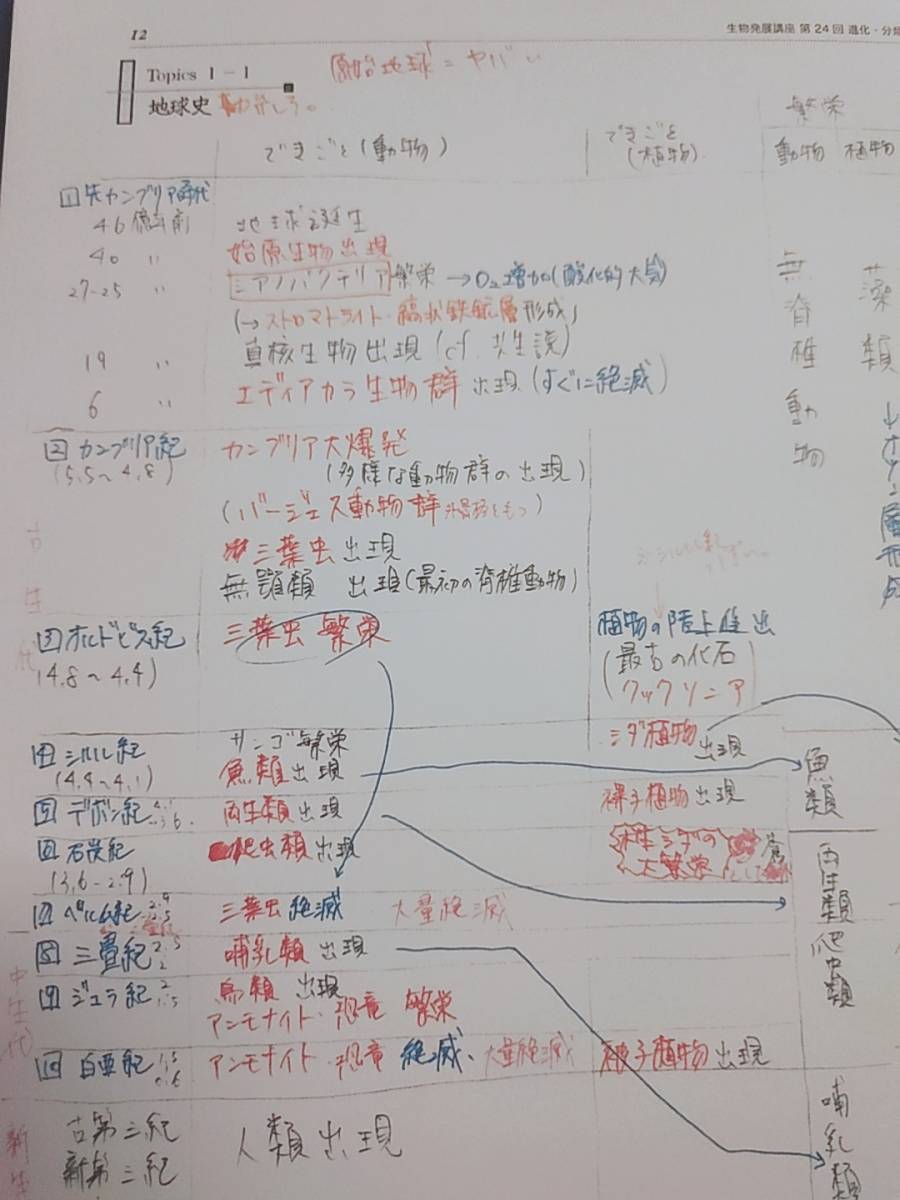 12
生物発展講座 第24回 進化・分類
Topics 1－1
原始地球 = ヤバい
地球史
できごと(動物)
できごと
(植物)
繁栄
動物 植物
1 先カンブリア時代
46 億年前 地球誕生
40 〃 始原生物出現
27-25 〃 シアノバクテリア繁栄 →O₂増加(酸化的大気)
(→ストロマトライト・縞状鉄鉱層形成)
19 〃 真核生物出現(cf. 共生説)
6 〃 エディアカラ生物群 出現(すぐに絶滅)
無脊椎動物
藻類
↓
オゾン層形成
古生代
2 カンブリア紀
(5.5～4.8)
カンブリア大爆発
(多様な動物群の出現)
(バージェス動物群 外骨格をもつ)
三葉虫出現
無顎類 出現(最初の脊椎動物)
3 オルドビス紀
(4.8～4.4)
三葉虫 繁栄
植物の陸上進出
(最古の化石)
クックソニア
4 シルル紀
(4.4～4.1)
サンゴ繁栄
魚類出現
シダ植物出現
魚類
5 デボン紀
両生類出現
裸子植物出現
6 石炭紀
(3.6-2.9)
爬虫類出現
木生シダの
大繁栄
両生類
7 ペルム紀 2.9 2.5
三葉虫 絶滅 大量絶滅
爬虫類
中生代
8 三畳紀 2.5 2
哺乳類出現
9 ジュラ紀 2 1.5
鳥類 出現
アンモナイト・恐竜 繁栄
10 白亜紀
アンモナイト・恐竜 絶滅、大量絶滅
被子植物出現
新生
古第三紀
新第三紀
人類出現
哺乳類